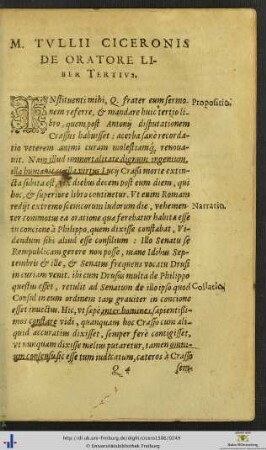 M. TVLLII CICERONIS
DE ORATORE LI-
BER TERTIVS.
INstituenti mihi, Q. frater eum sermo-
Propositio.
nem referre, & mandare huic tertio li-
bro, quem post Antonij disputationem
Crassus habuisset: acerba sanè recorda-
tio veterem animi curam molestiamq́; renoua-
uit. Nam illud immortalitate dignum ingenium,
illa humanitas, illa virtus Lucij Crassi morte extin-
cta subita est, vix diebus decem post eum diem, qui
hoc, & superiore libro continetur. Vt enim Romam
redijt extremo scenicorum ludorum die, vehemen-
Narratio.
ter commotus ea oratione quæ ferebatur habita esse
in concione à Philippo, quem dixisse constabat, Vi-
dendum sibi aliud esse consilium: illo Senatu se
Rempublicam gerere non posse, mane Idibus Sep-
tembris & ille, & Senatus frequens vocatu Drusi
in curiam venit. ibi cum Drusus multa de Philippo
questus esset, retulit ad Senatum de illo ipso quod
Collatio.
Consul in eum ordinem tam grauiter in concione
esset inuectus. Hic, vt sæpe inter homines sapientissi-
mos constare vidi, quanquam hoc Crasso cum ali-
quid accuratim dixisset, semper ferè contigisset,
vt nunquam dixisse melius putaretur, tamen omni-
um consensu sic esse tum iudicatum, cæteros à Crasso
Q 4
sem-
http://dl.ub.uni-freiburg.de/diglit/cicero1588/0249
© Universitätsbibliothek Freiburg